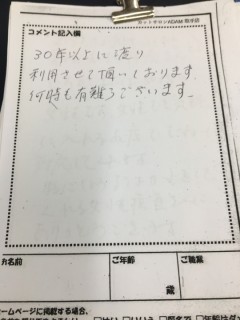 カットサロンADAM
コメント記入欄
30年以上に渡り
利用させて頂いております
何時も有難うございます。
お名前
ご年齢
ご職業
歳
ームページに掲載する場合、